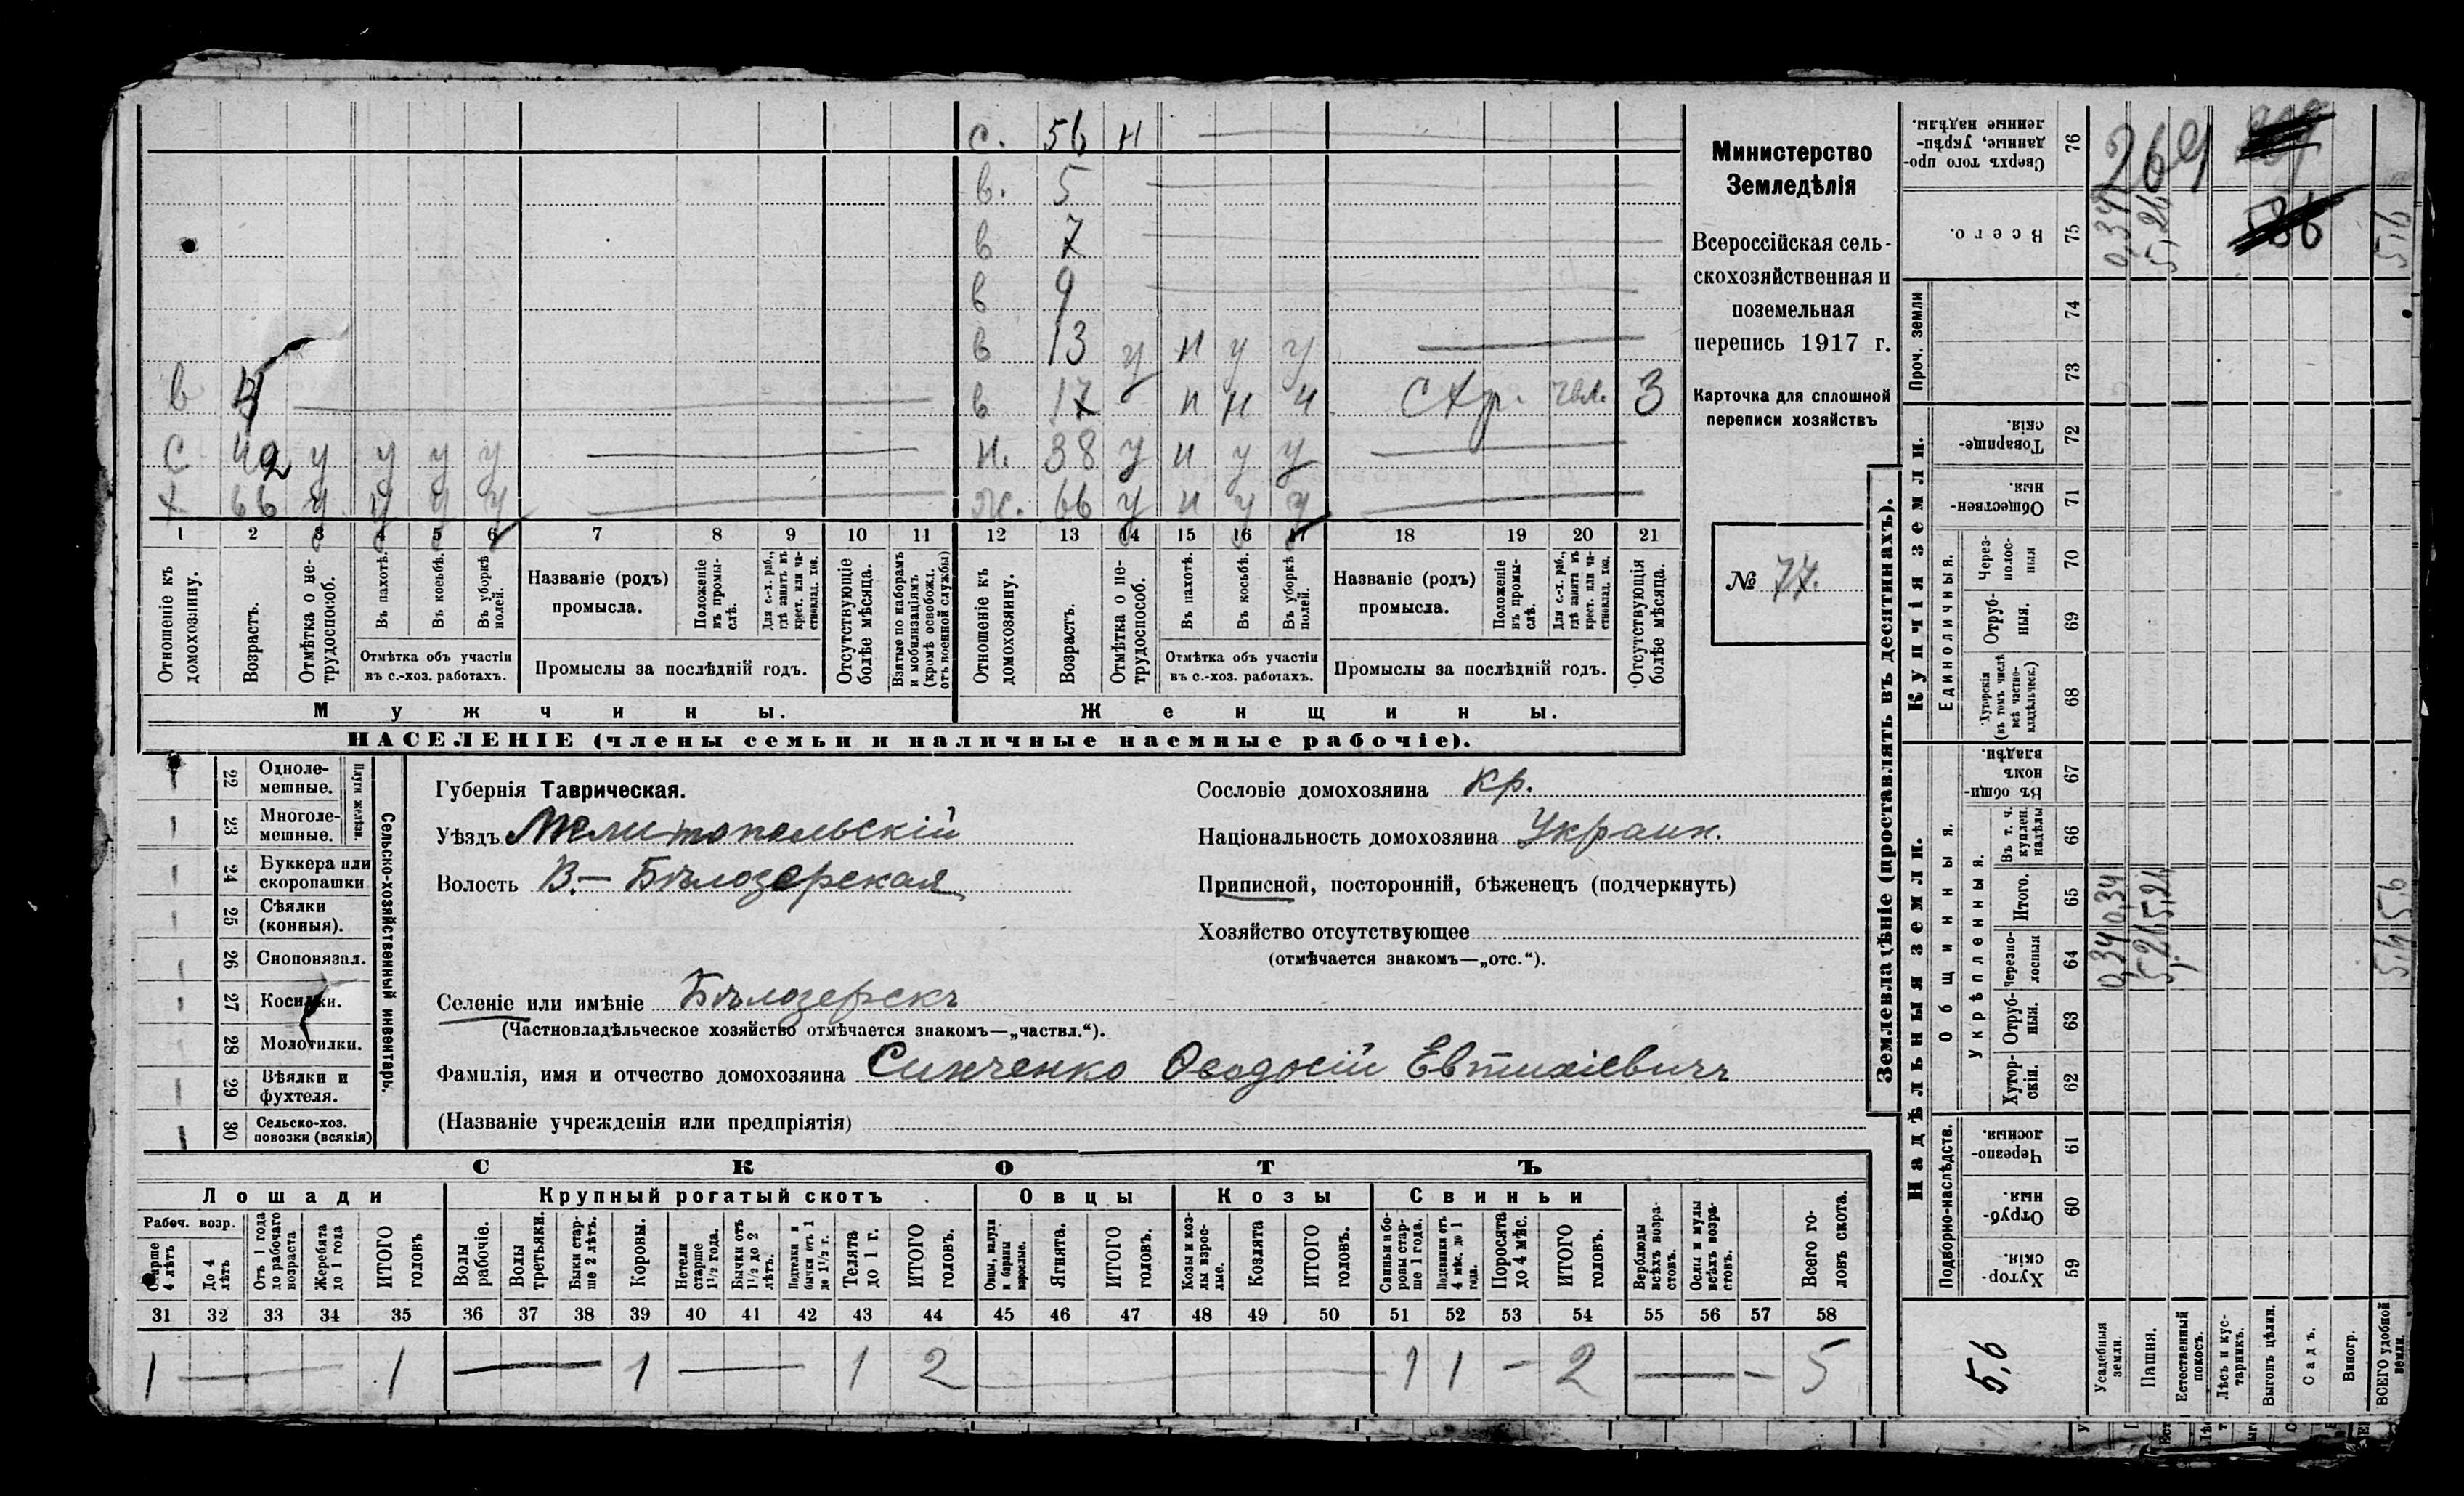 с. 56 н
в. 5
в 7
в 9
в 13 у н у у
в 4
в 17 н н н Схр. 3
с 42 у у у у
н. 38 у н у у
х 66 у у у у
ж. 66 у н у у
1 2 3 4 5 6 7 8 9 10 11 12 13 14 15 16 17 18 19 20 21
Отношеніе къ домохозяину.
Возрастъ.
Отмѣтка о не-трудоспособ.
Въ пахотѣ.
Въ косьбѣ.
Въ уборкѣ полей.
Отмѣтка объ участіи
въ с.-хоз. работахъ.
Названіе (родъ)
промысла.
Положеніе въ промы-слѣ.
Для с.-х. раб., гдѣ занятъ въ крест. или ча-стновлад. хоз.
Промыслы за послѣдній годъ.
Отсутствующіе болѣе мѣсяца.
Взятые по наборамъ и мобилизаціямъ (кромѣ освобожд. отъ военной службы)
Отношеніе къ домохозяину.
Возрастъ.
Отмѣтка о не-трудоспособ.
Въ пахотѣ.
Въ косьбѣ.
Въ уборкѣ полей.
Отмѣтка объ участіи
въ с.-хоз. работахъ.
Названіе (родъ)
промысла.
Положеніе въ промы-слѣ.
Для с.-х. раб., гдѣ занята въ крест. или ча-стновлад. хоз.
Промыслы за послѣдній годъ.
Отсутствующія болѣе мѣсяца.
Мужчины.
Женщины.
НАСЕЛЕНІЕ (члены семьи и наличные наемные рабочіе).
Министерство
Земледѣлія
Всероссійская сель-
скохозяйственная и
поземельная
перепись 1917 г.
Карточка для сплошной
переписи хозяйствъ
№ 77.
22 Одноле-
мешные.
23 Многоле-
мешные.
Плуги желѣзн.
24 Буккера или
скоропашки
25 Сѣялки
(конныя).
26 Сноповязал.
27 Косилки.
28 Молотилки.
29 Вѣялки и
фухтеля.
30 Сельско-хоз.
повозки (всякія)
Сельско-хозяйственный инвентарь.
Губернія Таврическая.
Уѣздъ Мелитопольскій
Волость В.- Бѣлозерская
Сословіе домохозяина кр.
Національность домохозяина Украин.
Приписной, посторонній, бѣженецъ (подчеркнуть)
Хозяйство отсутствующее
(отмѣчается знакомъ—„отс.“).
Селеніе или имѣніе Бѣлозерскъ
(Частновладѣльческое хозяйство отмѣчается знакомъ—„частвл.“).
Фамилія, имя и отчество домохозяина Синченко Ѳеодосій Евтихіевичъ
(Названіе учрежденія или предпріятія)
СКОТЪ
Лошади
Крупный рогатый скотъ
Овцы
Козы
Свиньи
Рабоч. возр.
Старше 4 лѣтъ
До 4 лѣтъ
Отъ 1 года до рабочаго возраста
Жеребята до 1 года
ИТОГО головъ
Волы рабочіе.
Волы третьяки.
Быки стар-ше 2 лѣтъ.
Коровы.
Нетели старше 1½ года.
Бычки отъ 1½ до 2 лѣтъ.
Подтелки и бычки отъ 1 до 1½ г.
Телята до 1 г.
ИТОГО головъ.
Овцы, валухи и бараны взрослые.
Ягнята.
ИТОГО головъ.
Козы и коз-лы взрос-лые.
Козлята
ИТОГО головъ.
Свиньи и бо-ровы стар-ше 1 года.
Подсвинки отъ 4 мѣс. до 1 года.
Поросята до 4 мѣс.
ИТОГО головъ.
Верблюды всѣхъ возра-стовъ.
Ослы и мулы всѣхъ возра-стовъ.
Всего го-ловъ скота.
31 32 33 34 35 36 37 38 39 40 41 42 43 44 45 46 47 48 49 50 51 52 53 54 55 56 57 58
1 — 1 — 1 — 1 2 1 1 - 2 — - 5
Землевладѣніе (проставлять въ десятинахъ).
Надѣльныя земли.
Купчія земли.
Проч. земли
Подворно-наслѣдств.
Общинныя.
Укрѣпленныя.
Единоличныя.
Сверхъ того про-данные, укрѣп-ленные надѣлы. 76 269
Всего. 75 0,34 5,26 5,6
74
73
Товарище-скія. 72
Обществен-ныя. 71
Через-полос-ныя 70
Отруб-ныя. 69
Хуторскія (въ томъ числѣ всѣ частно-владѣльческ.) 68
Въ общи-номъ владѣн. 67
Въ т. ч. куплен. надѣлы 66
Итого. 65 0,34 5,26 5,6
Черезпо-лосныя 64 0,34 5,26 5,6
Отруб-ныя. 63
Хутор-скія. 62
Черезпо-лосныя. 61
Отруб-ныя. 60
Хутор-скія. 59
5,6
Усадебныя земли.
Пашня.
Естественный покосъ.
Лѣсъ и кус-тарникъ.
Выгонъ цѣлин.
Садъ.
Виногр.
ВСЕГО удобной земли.